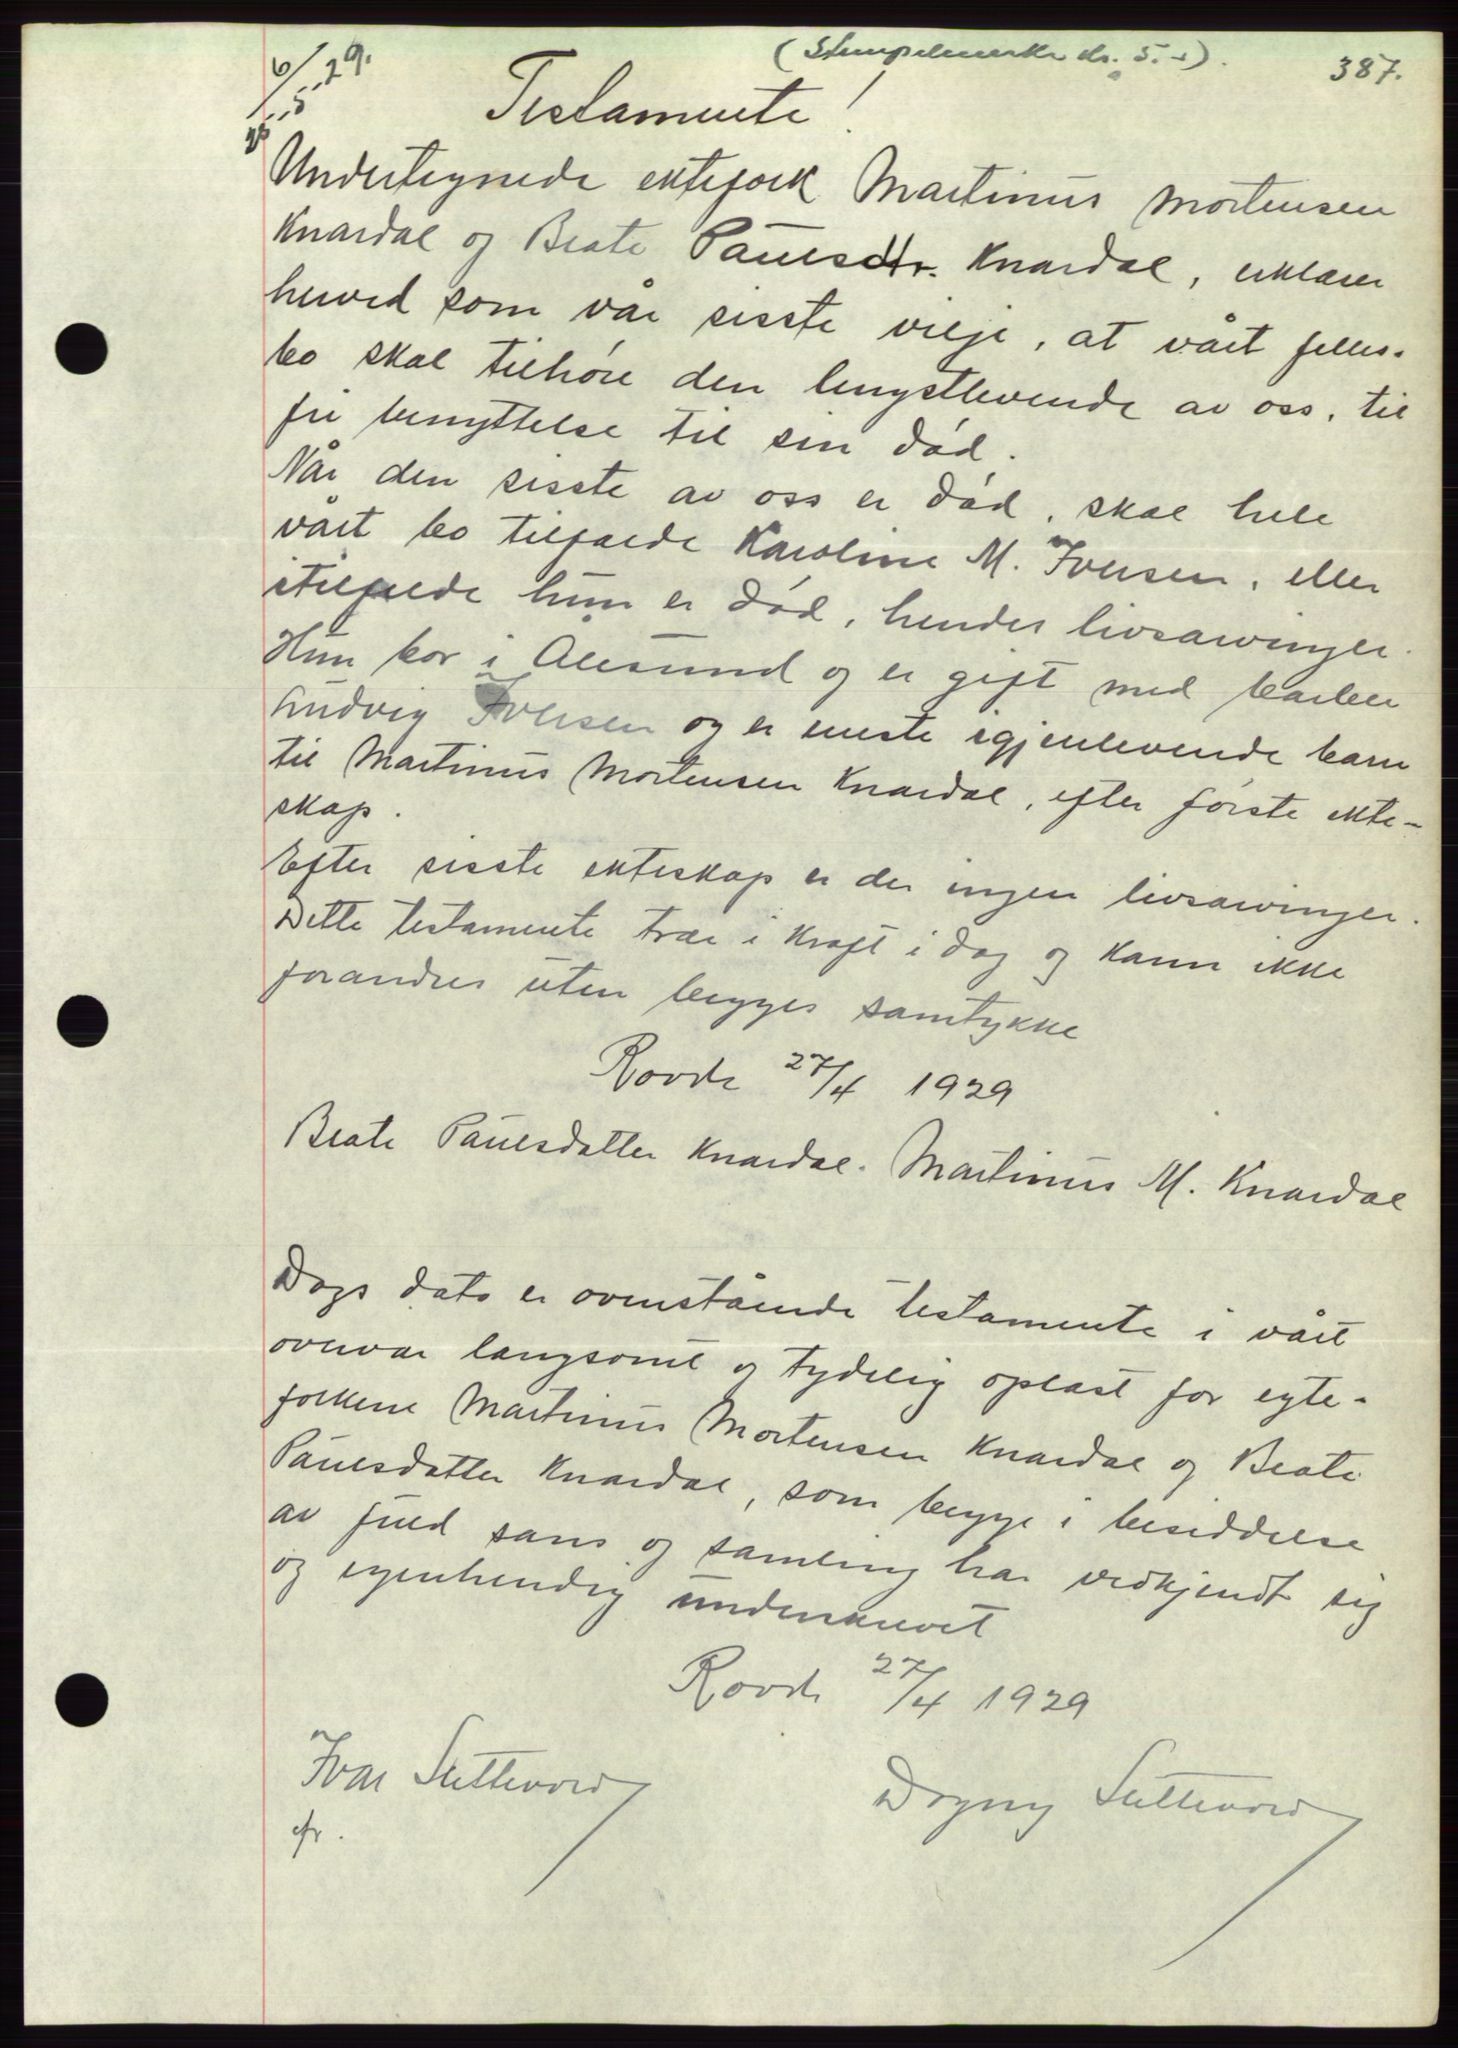 (Stempelmerke kr. 5.-).
387.
6/5-29.
Testamente!
Undertegnede ektefolk Martinus Mortensen
Knardal og Beate Paulsdtr. Knardal, erklærer
herved som vår sisste vilje, at vårt felles-
bo skal tilhøre den lengstlevende av oss, til
fri benyttelse til sin død.
Når den sisste av oss er død, skal hele
vårt bo tilfalde Karoline M. Iversen, eller
itilfelde hun er død, hendes livsarvinger.
Hun bor i Ålesund og er gift med barber
Ludvig Iversen og er eneste igjenlevende barn
til Martinus Mortensen Knardal, efter første ekte-
skap.
Efter sisste ekteskap er der ingen livsarvinger.
Dette testamente træe i kraft i dag og kann ikke
forandres uten begges samtykke
Rovde 27/4 1929
Beate Paulsdatter Knardal. Martinus M. Knardal
Dags dato er ovenstående testamente i vårt
overvær langsomt og tydelig oplæst for egte-
folkene Martinus Mortensen Knardal og Beate
Paulsdatter Knardal, som begge i besiddelse
av fuld sans og samling har vedkjendt sig
og egenhendig underskrevet
Rovde 27/4 1929
Ivar Sættevord Dagny Sættevord